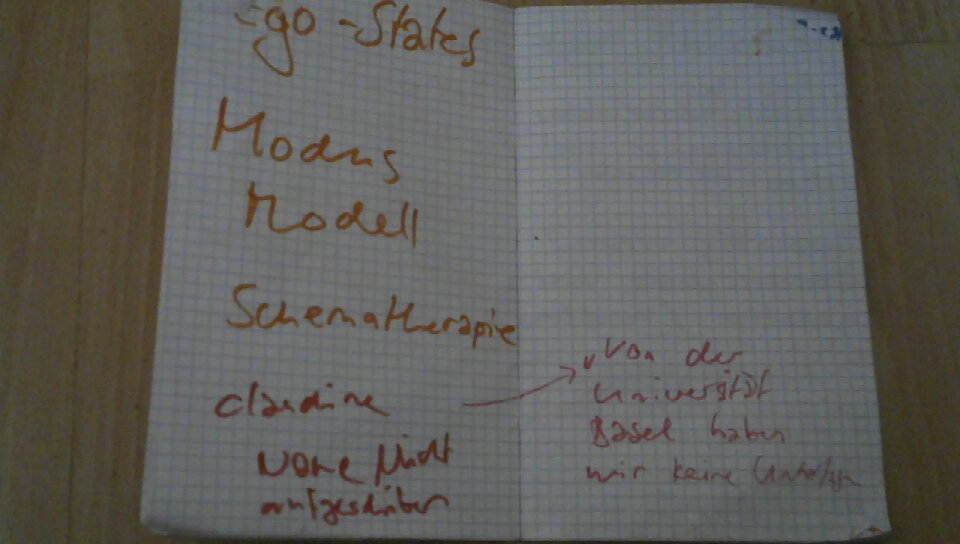 Ego-States
Modus
Modell
Schematherapie
Claudine
Name Nicht
aufgeschrieben
„Von der
Universität
Basel haben
wir keine